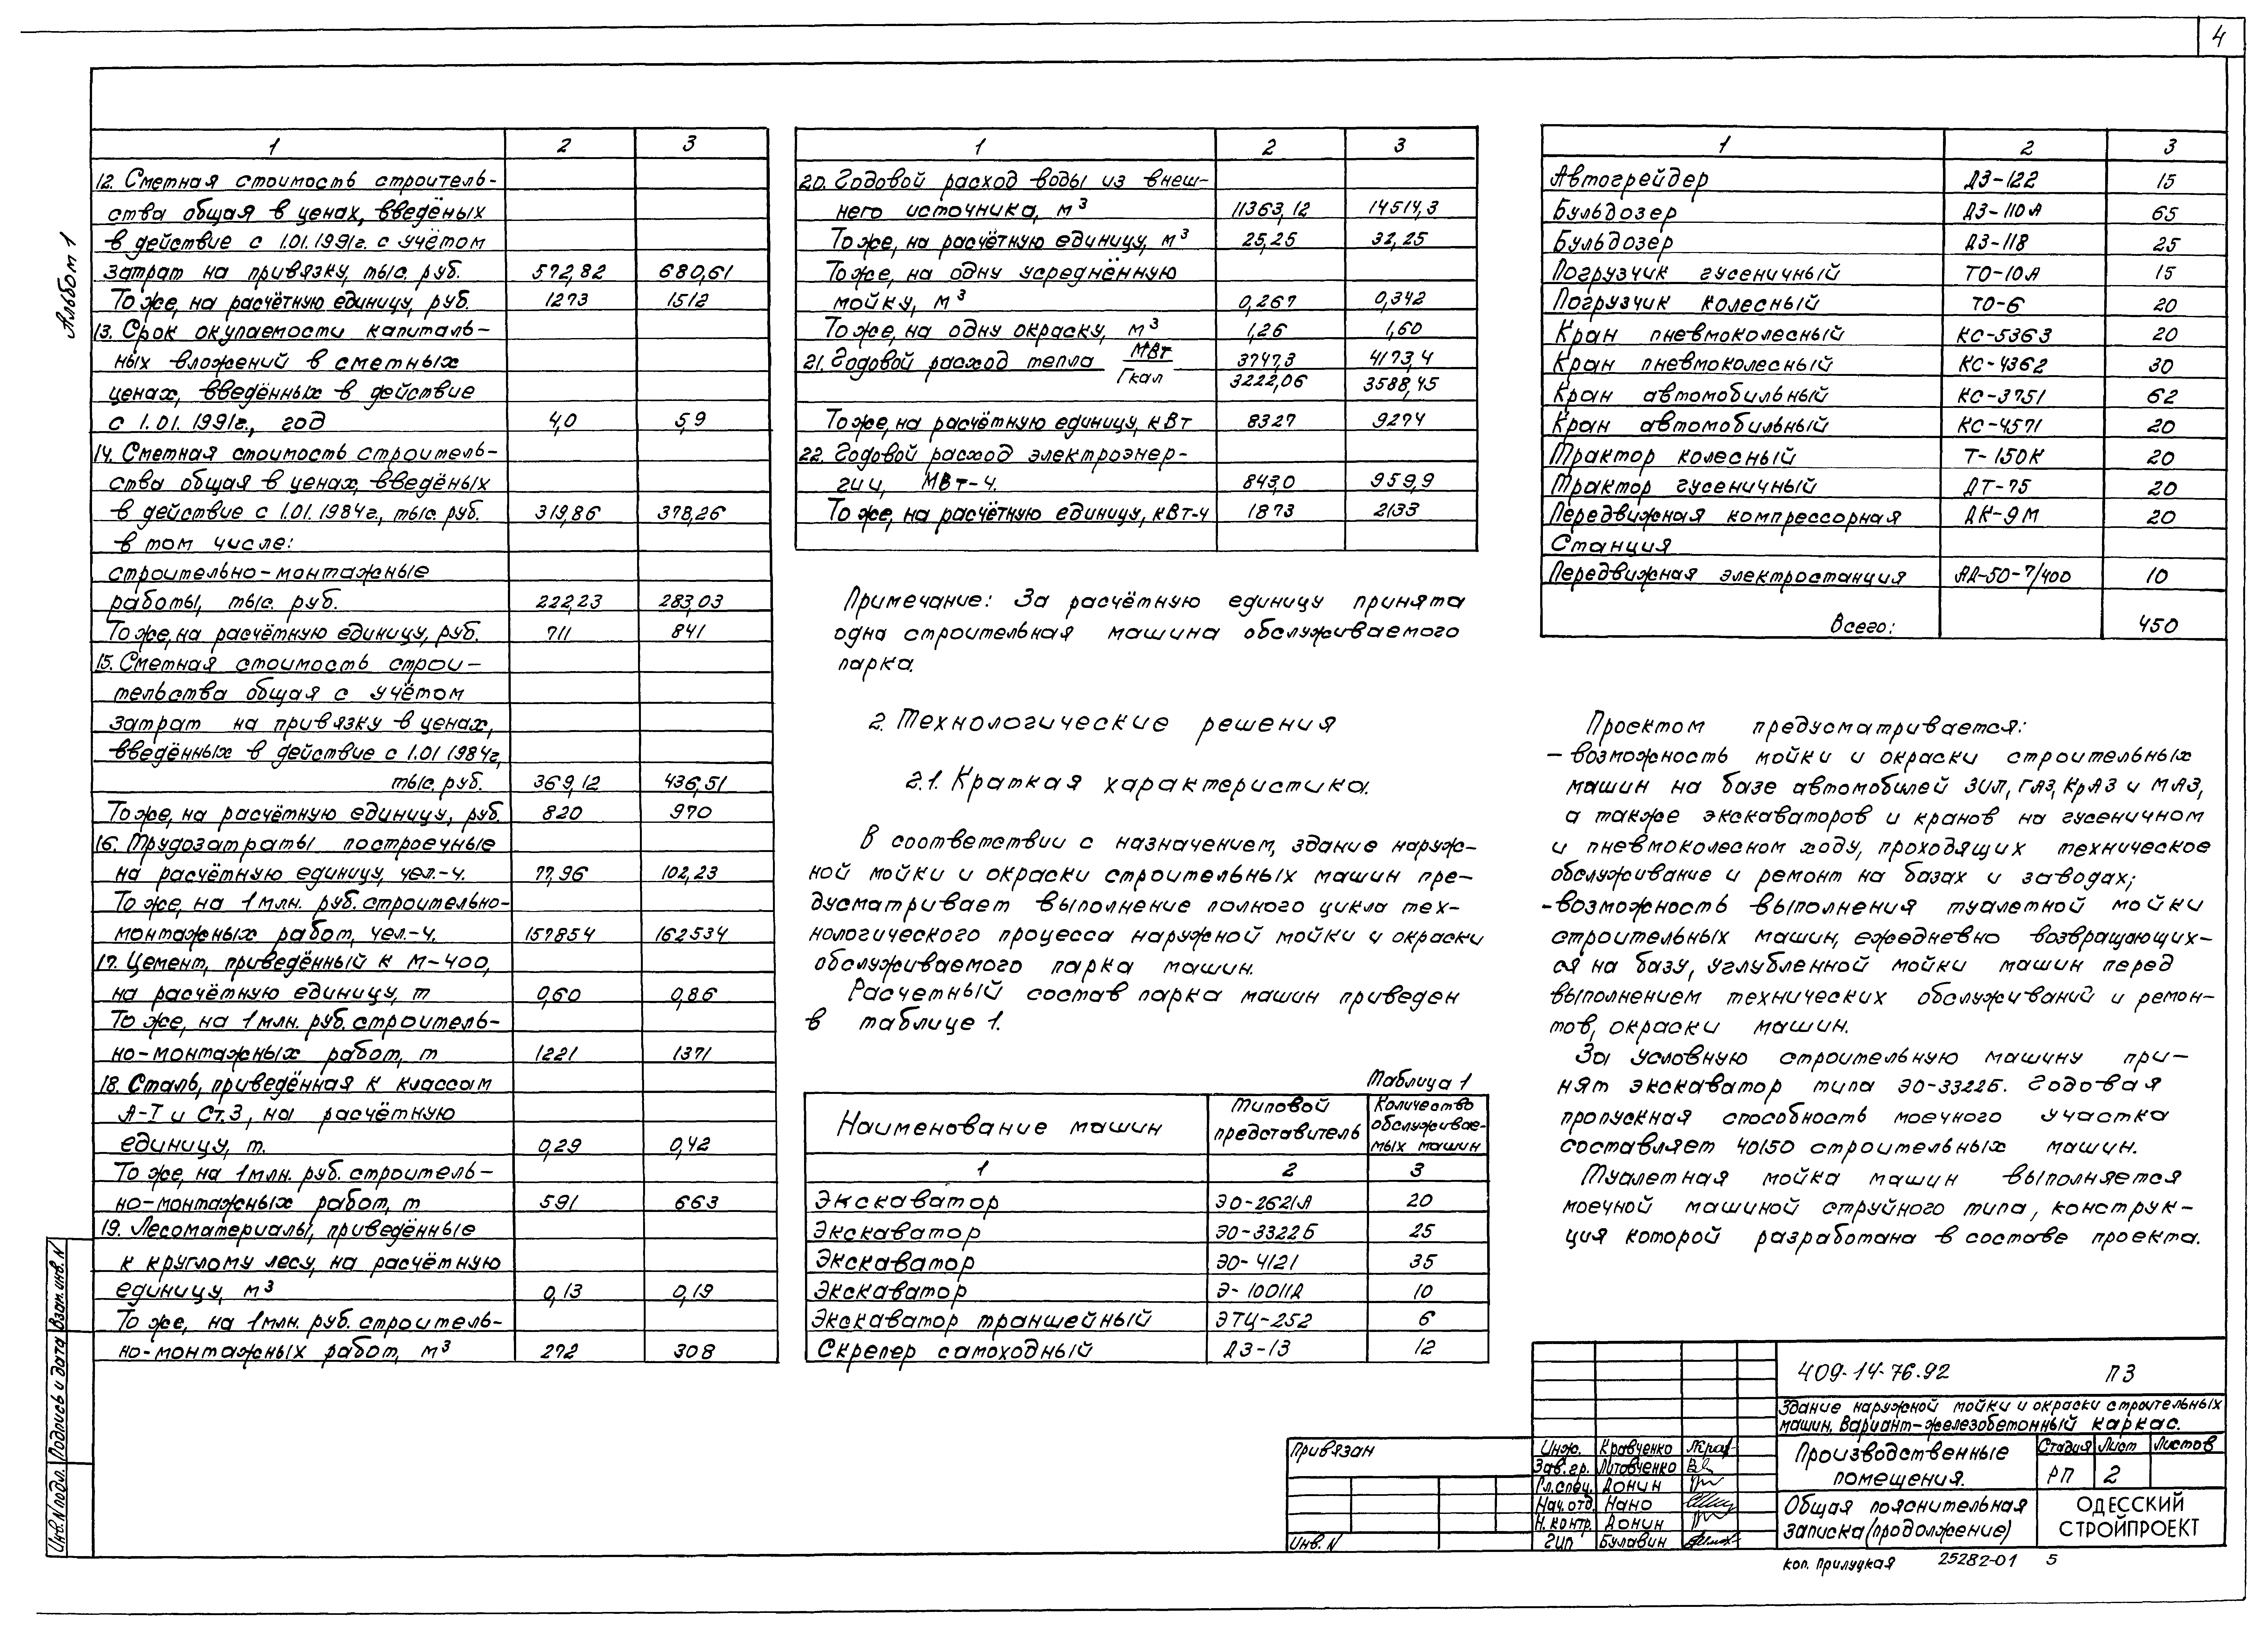 4
Альбом 1
1 2 3
12. Сметная стоимость строитель-
ства общая в ценах, введёных
в действие с 1.01.1991г. с учётом
затрат на привязку, тыс. руб. 572,82 680,61
То же, на расчётную единицу, руб. 1273 1512
13. Срок окупаемости капиталь-
ных вложений в сметных
ценах, введённых в действие
с 1.01.1991г., год 4,0 5,9
14. Сметная стоимость строитель-
ства общая в ценах, введёных
в действие с 1.01.1984г., тыс. руб. 319,86 378,26
в том числе:
строительно-монтажные
работы, тыс. руб. 222,23 283,03
То же, на расчётную единицу, руб. 711 841
15. Сметная стоимость строи-
тельства общая с учётом
затрат на привязку в ценах,
введённых в действие с 1.01 1984г,
тыс. руб. 369,12 436,51
То же, на расчётную единицу, руб. 820 970
16. Трудозатраты построечные
на расчётную единицу, чел.-ч. 77,96 102,23
То же, на 1 млн. руб. строительно-
монтажных работ, чел.-ч. 157854 162534
17. Цемент, приведённый к М-400,
на расчётную единицу, т 0,60 0,86
То же, на 1 млн. руб. строитель-
но-монтажных работ, т 1221 1371
18. Сталь, приведённая к классам
А-I и Ст.3, на расчётную
единицу, т. 0,29 0,42
То же, на 1 млн. руб. строитель-
но-монтажных работ, т 591 663
19. Лесоматериалы, приведённые
к круглому лесу, на расчётную
единицу, м³ 0,13 0,19
То же, на 1 млн. руб. строитель-
но-монтажных работ, м³ 272 308
1 2 3
20. Годовой расход воды из внеш-
него источника, м³ 11363,12 14514,3
То же, на расчётную единицу, м³ 25,25 32,25
То же, на одну усреднённую
мойку, м³ 0,267 0,342
То же, на одну окраску, м³ 1,26 1,60
21. Годовой расход тепла МВт 3747,3 4173,4
Гкал 3222,06 3588,45
То же, на расчётную единицу, кВт 8327 9274
22. Годовой расход электроэнер-
гии, МВт-ч. 843,0 959,9
То же, на расчётную единицу, кВт-ч 1873 2133
Примечание: За расчётную единицу принята
одна строительная машина обслуживаемого
парка.
2. Технологические решения
2.1. Краткая характеристика.
В соответствии с назначением, здание наруж-
ной мойки и окраски строительных машин пре-
дусматривает выполнение полного цикла тех-
нологического процесса наружной мойки и окраски
обслуживаемого парка машин.
Расчетный состав парка машин приведен
в таблице 1.
Таблица 1
Наименование машин Типовой представитель Количество обслуживае-
мых машин
1 2 3
Экскаватор ЭО-2621А 20
Экскаватор ЭО-3322Б 25
Экскаватор ЭО-4121 35
Экскаватор Э-10011Д 10
Экскаватор траншейный ЭТЦ-252 6
Скрепер самоходный ДЗ-13 12
1 2 3
Автогрейдер ДЗ-122 15
Бульдозер ДЗ-110А 65
Бульдозер ДЗ-118 25
Погрузчик гусеничный ТО-10А 15
Погрузчик колесный ТО-6 20
Кран пневмоколесный КС-5363 20
Кран пневмоколесный КС-4362 30
Кран автомобильный КС-3751 62
Кран автомобильный КС-4571 20
Трактор колесный Т-150К 20
Трактор гусеничный ДТ-75 20
Передвижная компрессорная ДК-9М 20
Станция
Передвижная электростанция АД-50-7/400 10
Всего: 450
Проектом предусматривается:
- возможность мойки и окраски строительных
машин на базе автомобилей ЗИЛ, ГАЗ, КрАЗ и МАЗ,
а также экскаваторов и кранов на гусеничном
и пневмоколесном ходу, проходящих техническое
обслуживание и ремонт на базах и заводах;
- возможность выполнения туалетной мойки
строительных машин, ежедневно возвращающих-
ся на базу, углубленной мойки машин перед
выполнением технических обслуживаний и ремон-
тов, окраски машин.
За условную строительную машину при-
нят экскаватор типа ЭО-3322Б. Годовая
пропускная способность моечного участка
составляет 40150 строительных машин.
Туалетная мойка машин выполняется
моечной машиной струйного типа, конструк-
ция которой разработана в составе проекта.
Инв. N подл. Подпись и дата Взам. инв. N
Привязан
Инв. N
Инж. Кравченко
Зав. гр. Литовченко
Гл. спец. Донин
Нач. отд Нано
Н. контр. Донин
ГИП Булавин
409-14-76.92 ПЗ
Здание наружной мойки и окраски строительных
машин. Вариант-железобетонный каркас.
Производственные
помещения.
Стадия Лист Листов
РП 2
Общая пояснительная
записка (продолжение)
ОДЕССКИЙ
СТРОЙПРОЕКТ
коп. Прилуцкая 25282-01 5